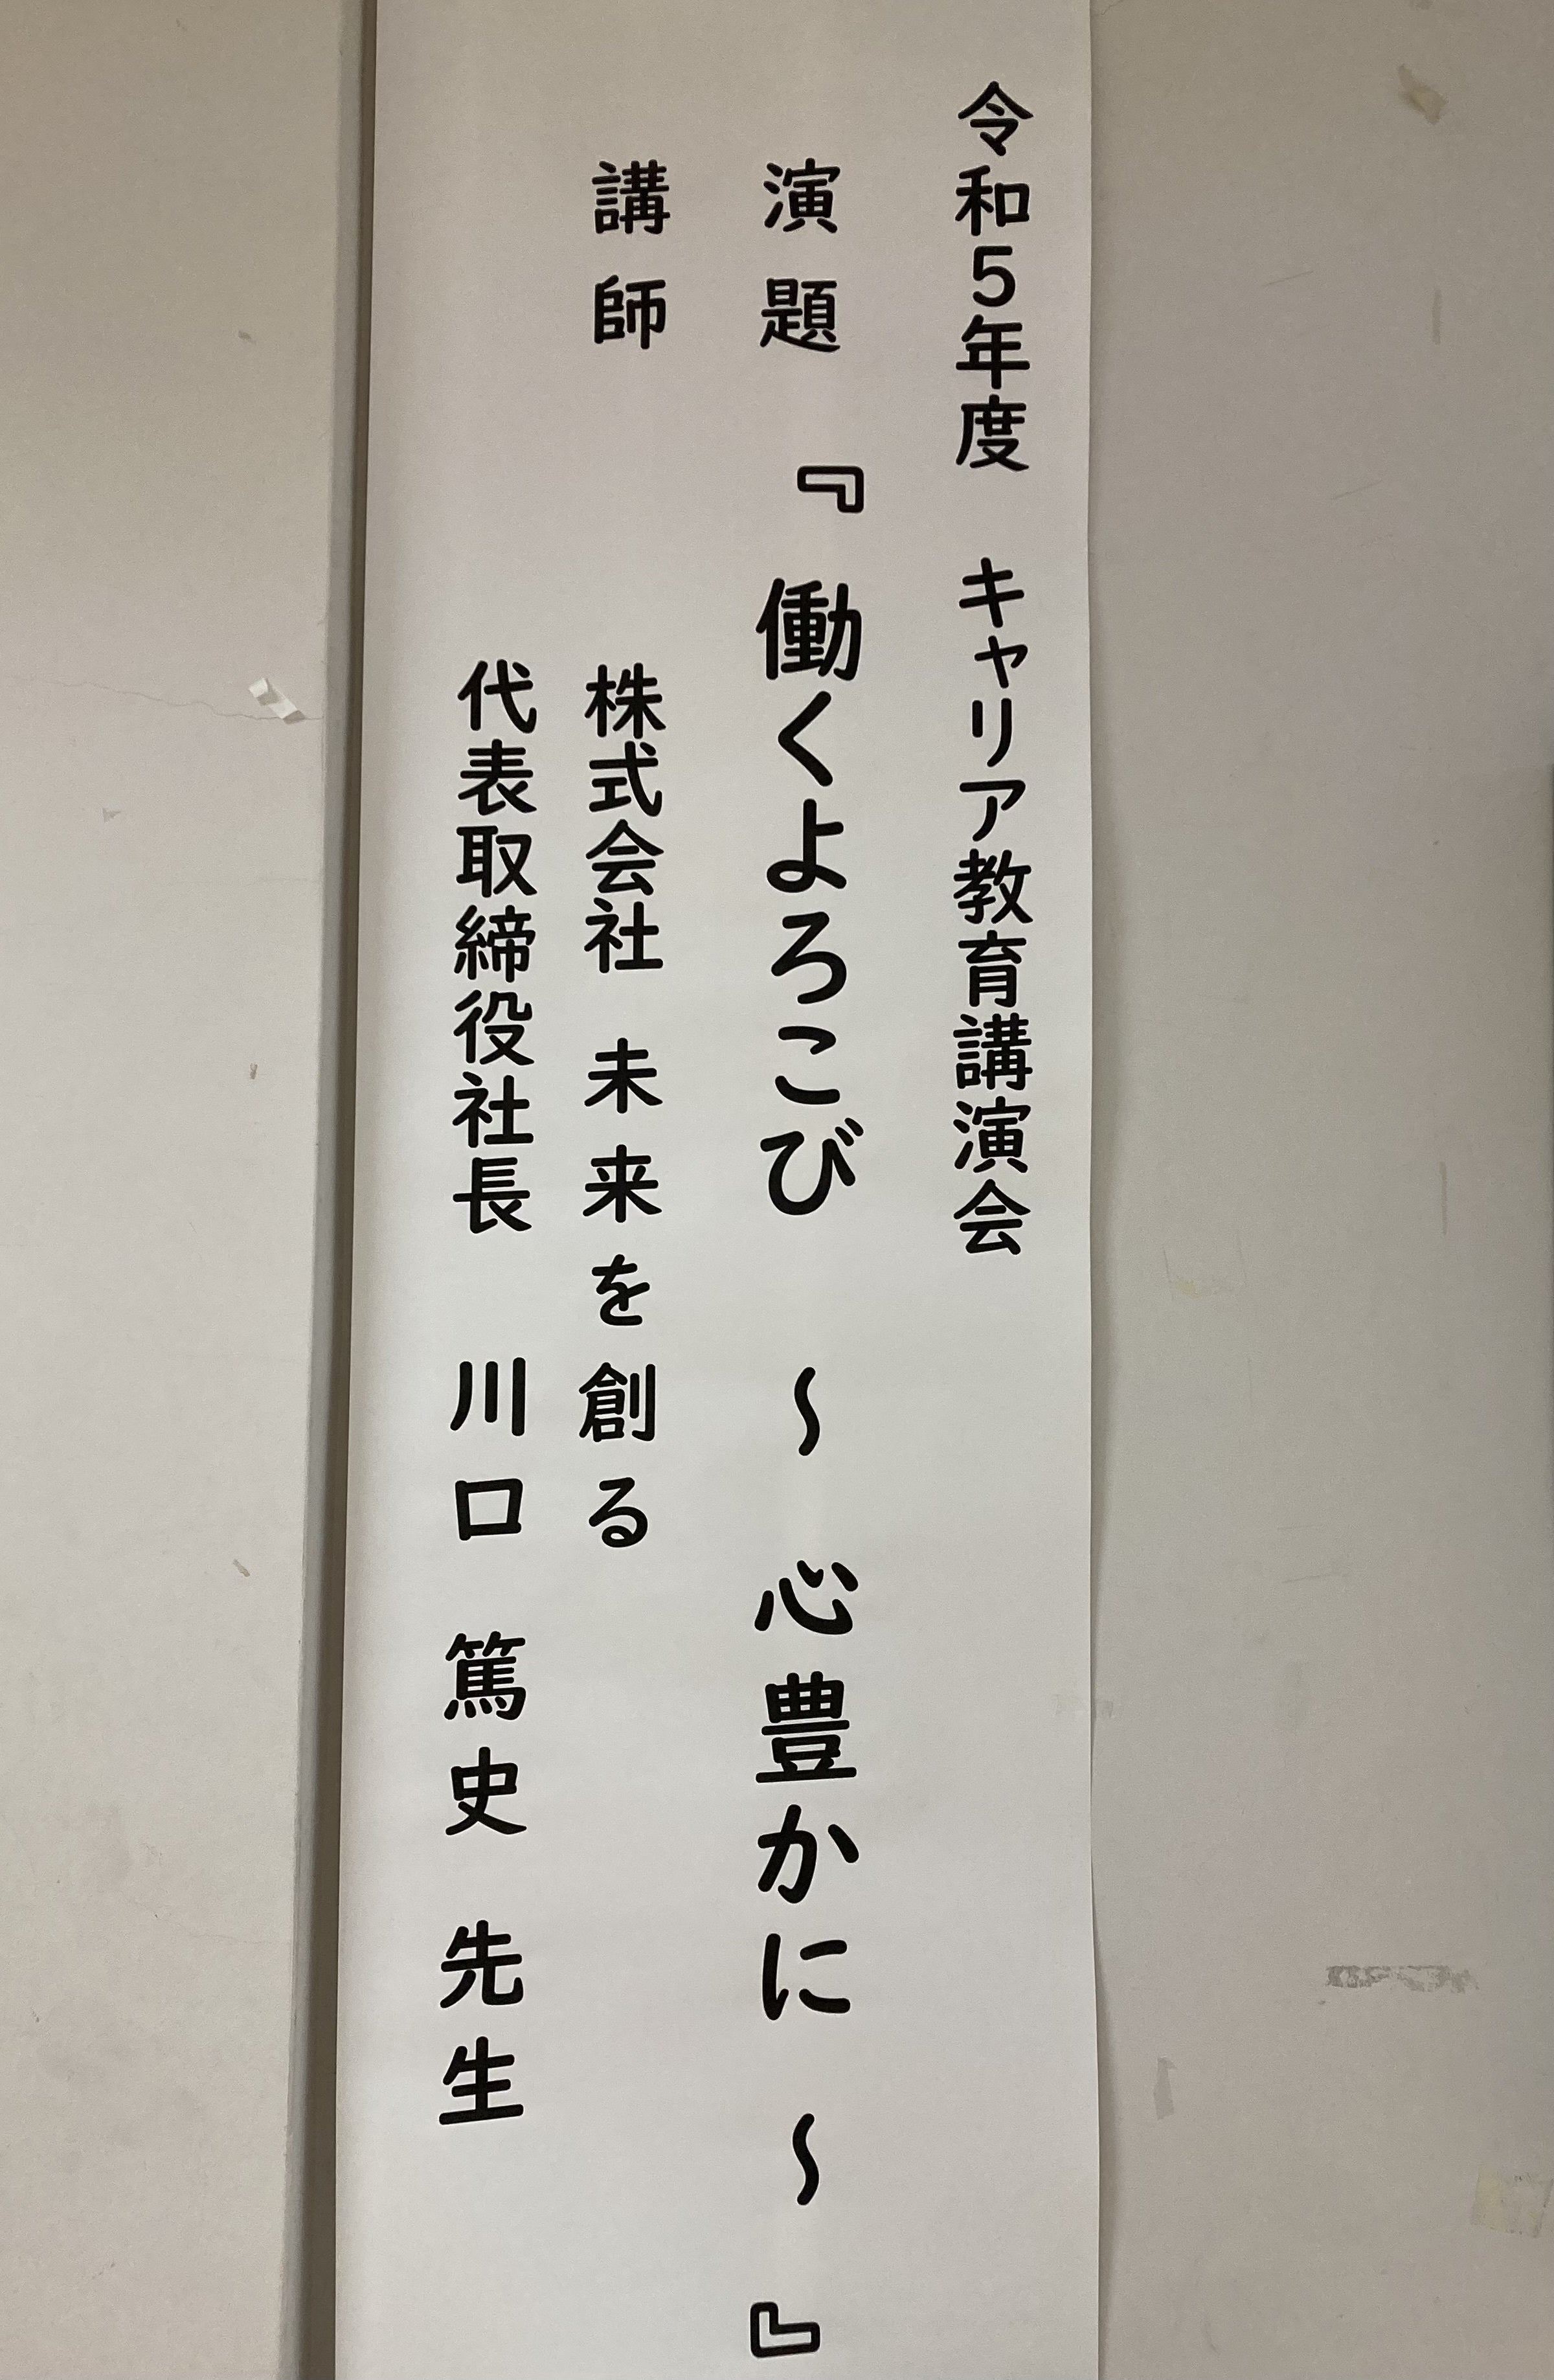 令和5年度 キャリア教育講演会
演題 『働くよろこび ～ 心豊かに ～ 』
講師 株式会社 未来を創る
代表取締役社長 川口 篤史 先生